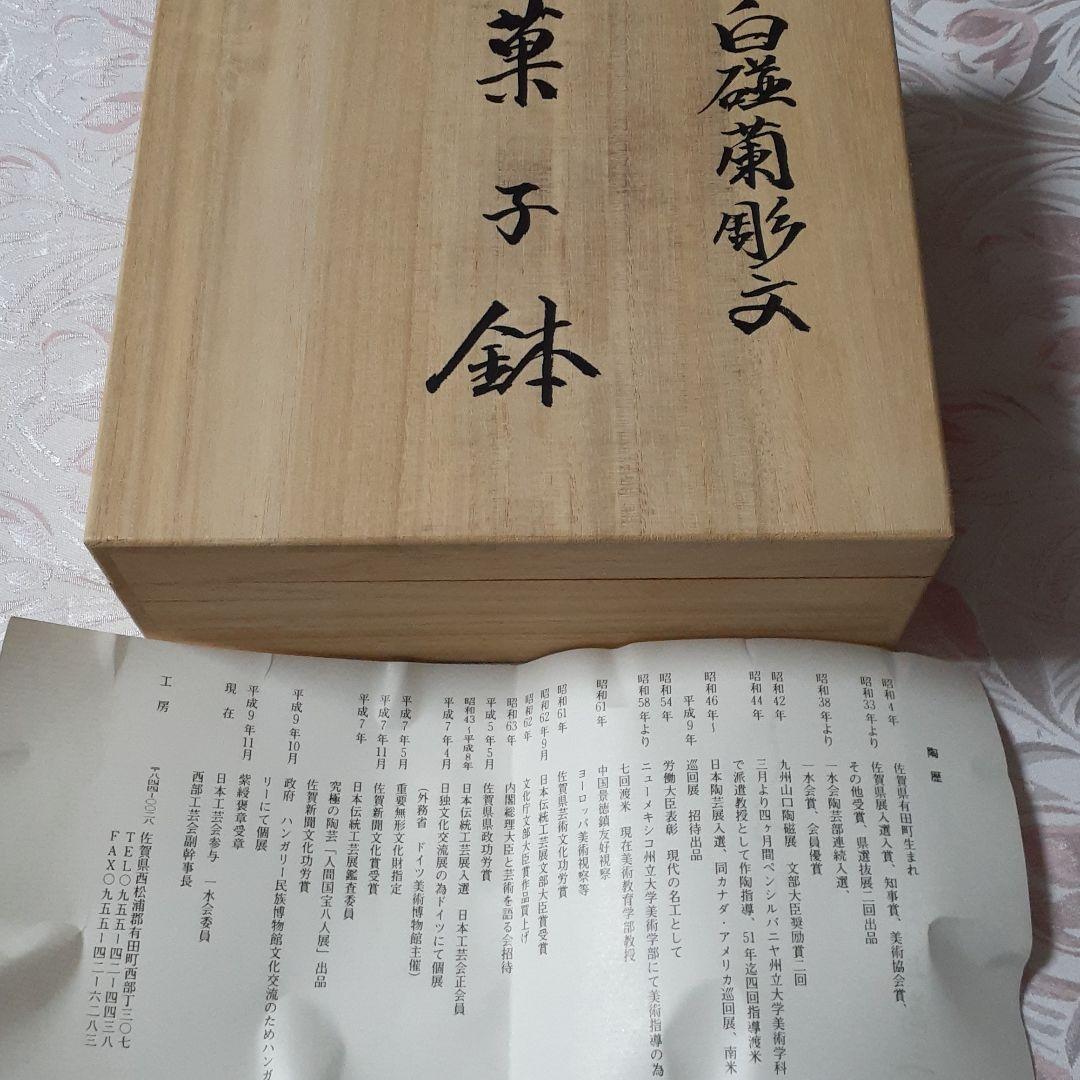 白磁蘭彫文
菓子鉢
陶歴
昭和4年 佐賀県有田町生まれ
昭和33年より 佐賀県展入選入賞、知事賞、美術協会賞、
その他受賞、県選抜展二回出品
昭和38年より 一水会陶芸部連続入選、
一水会賞、会員優賞
昭和42年 九州山口陶磁展 文部大臣奨励賞二回
昭和44年 三月より四ヶ月間ペンシルバニヤ州立大学美術学科
で派遣教授として作陶指導、51年迄四回指導渡米
昭和46年～ 日本陶芸展入選、同カナダ・アメリカ巡回展、南米
平成9年 巡回展 招待出品
昭和54年 労働大臣表彰 現代の名工として
昭和58年より ニューメキシコ州立大学美術学部にて美術指導の為
七回渡米 現在美術教育学部教授
昭和61年 中国景徳鎮友好視察
ヨーロッパ美術視察等
昭和61年 佐賀県芸術文化功労賞
昭和62年9月 日本伝統工芸展文部大臣賞受賞
昭和62年 文化庁文部大臣賞作品買上げ
昭和63年 内閣総理大臣と芸術を語る会招待
平成5年5月 佐賀県県政功労賞
昭和43～平成8年 日本伝統工芸展入選 日本工芸会正会員
平成7年4月 日独文化交流展の為ドイツにて個展
（外務省 ドイツ美術博物館主催）
平成7年5月 重要無形文化財指定
平成7年11月 佐賀新聞文化賞受賞
平成7年 日本伝統工芸展鑑査委員
究極の陶芸「人間国宝八人展」出品
佐賀新聞文化功労賞
平成9年10月 政府 ハンガリー民族博物館文化交流のためハンガ
リーにて個展
平成9年11月 紫綬褒章受章
現在 日本工芸会参与 一水会委員
西部工芸会副幹事長
工房 〒八四四-〇〇二八 佐賀県西松浦郡有田町西部丁三〇七
TEL〇九五五-四二-四四三八
FAX〇九五五-四二-六二八三